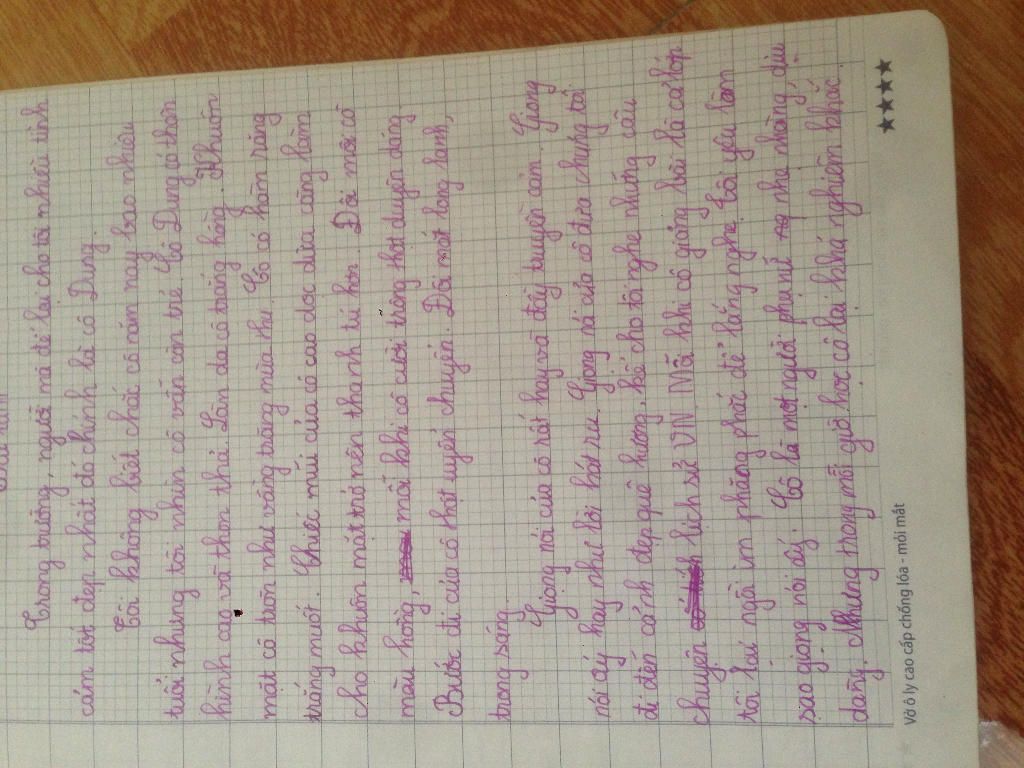 Trong trường, người mà để lại cho tôi nhiều tình
cảm tốt đẹp nhất đó chính là cô Dung.
Tôi không biết chắc cô năm nay bao nhiêu
tuổi nhưng tôi nhìn cô vẫn còn trẻ. Cô Dung có thân
hình cao và thon thả. Làn da cô trắng hồng. Khuôn
mặt cô tròn như vầng trăng mùa thu. Cô có hàm răng
trắng muốt. Chiếc mũi của cô cao dọc dừa càng làm
cho khuôn mặt trở nên thanh tú hơn. Đôi môi cô
màu hồng, mỗi khi cô cười trông thật duyên dáng
Bước đi của cô thật uyển chuyển. Đôi mắt long lanh,
trong sáng.
Giọng nói của cô rất hay và đầy truyền cảm. Giọng
nói ấy hay như lời hát ru. Giọng nói của cô đưa chúng tôi
đi đến cảnh đẹp quê hương, kể cho tôi nghe những câu
chuyện lịch sử VN. Mỗi khi cô giảng bài là cả lớp
tôi lại ngồi im phăng phắc để lắng nghe. Tôi yêu làm
sao giọng nói ấy. Cô là một người phụ nữ nhẹ nhàng, dịu
dàng. Nhưng trong mỗi giờ học cô lại khá nghiêm khắc.
Vở ô ly cao cấp chống lóa - mỏi mắt